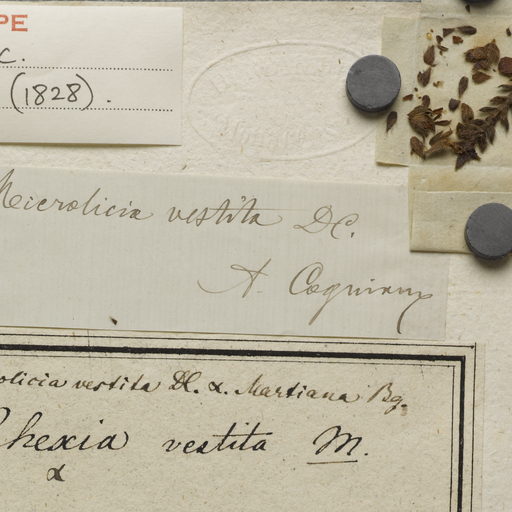 PE
c.
(1828).
Microlicia vestita DC.
A. Cogniaux
olicia vestita DC. α. Martiana Bg.
Rhexia vestita M.
α